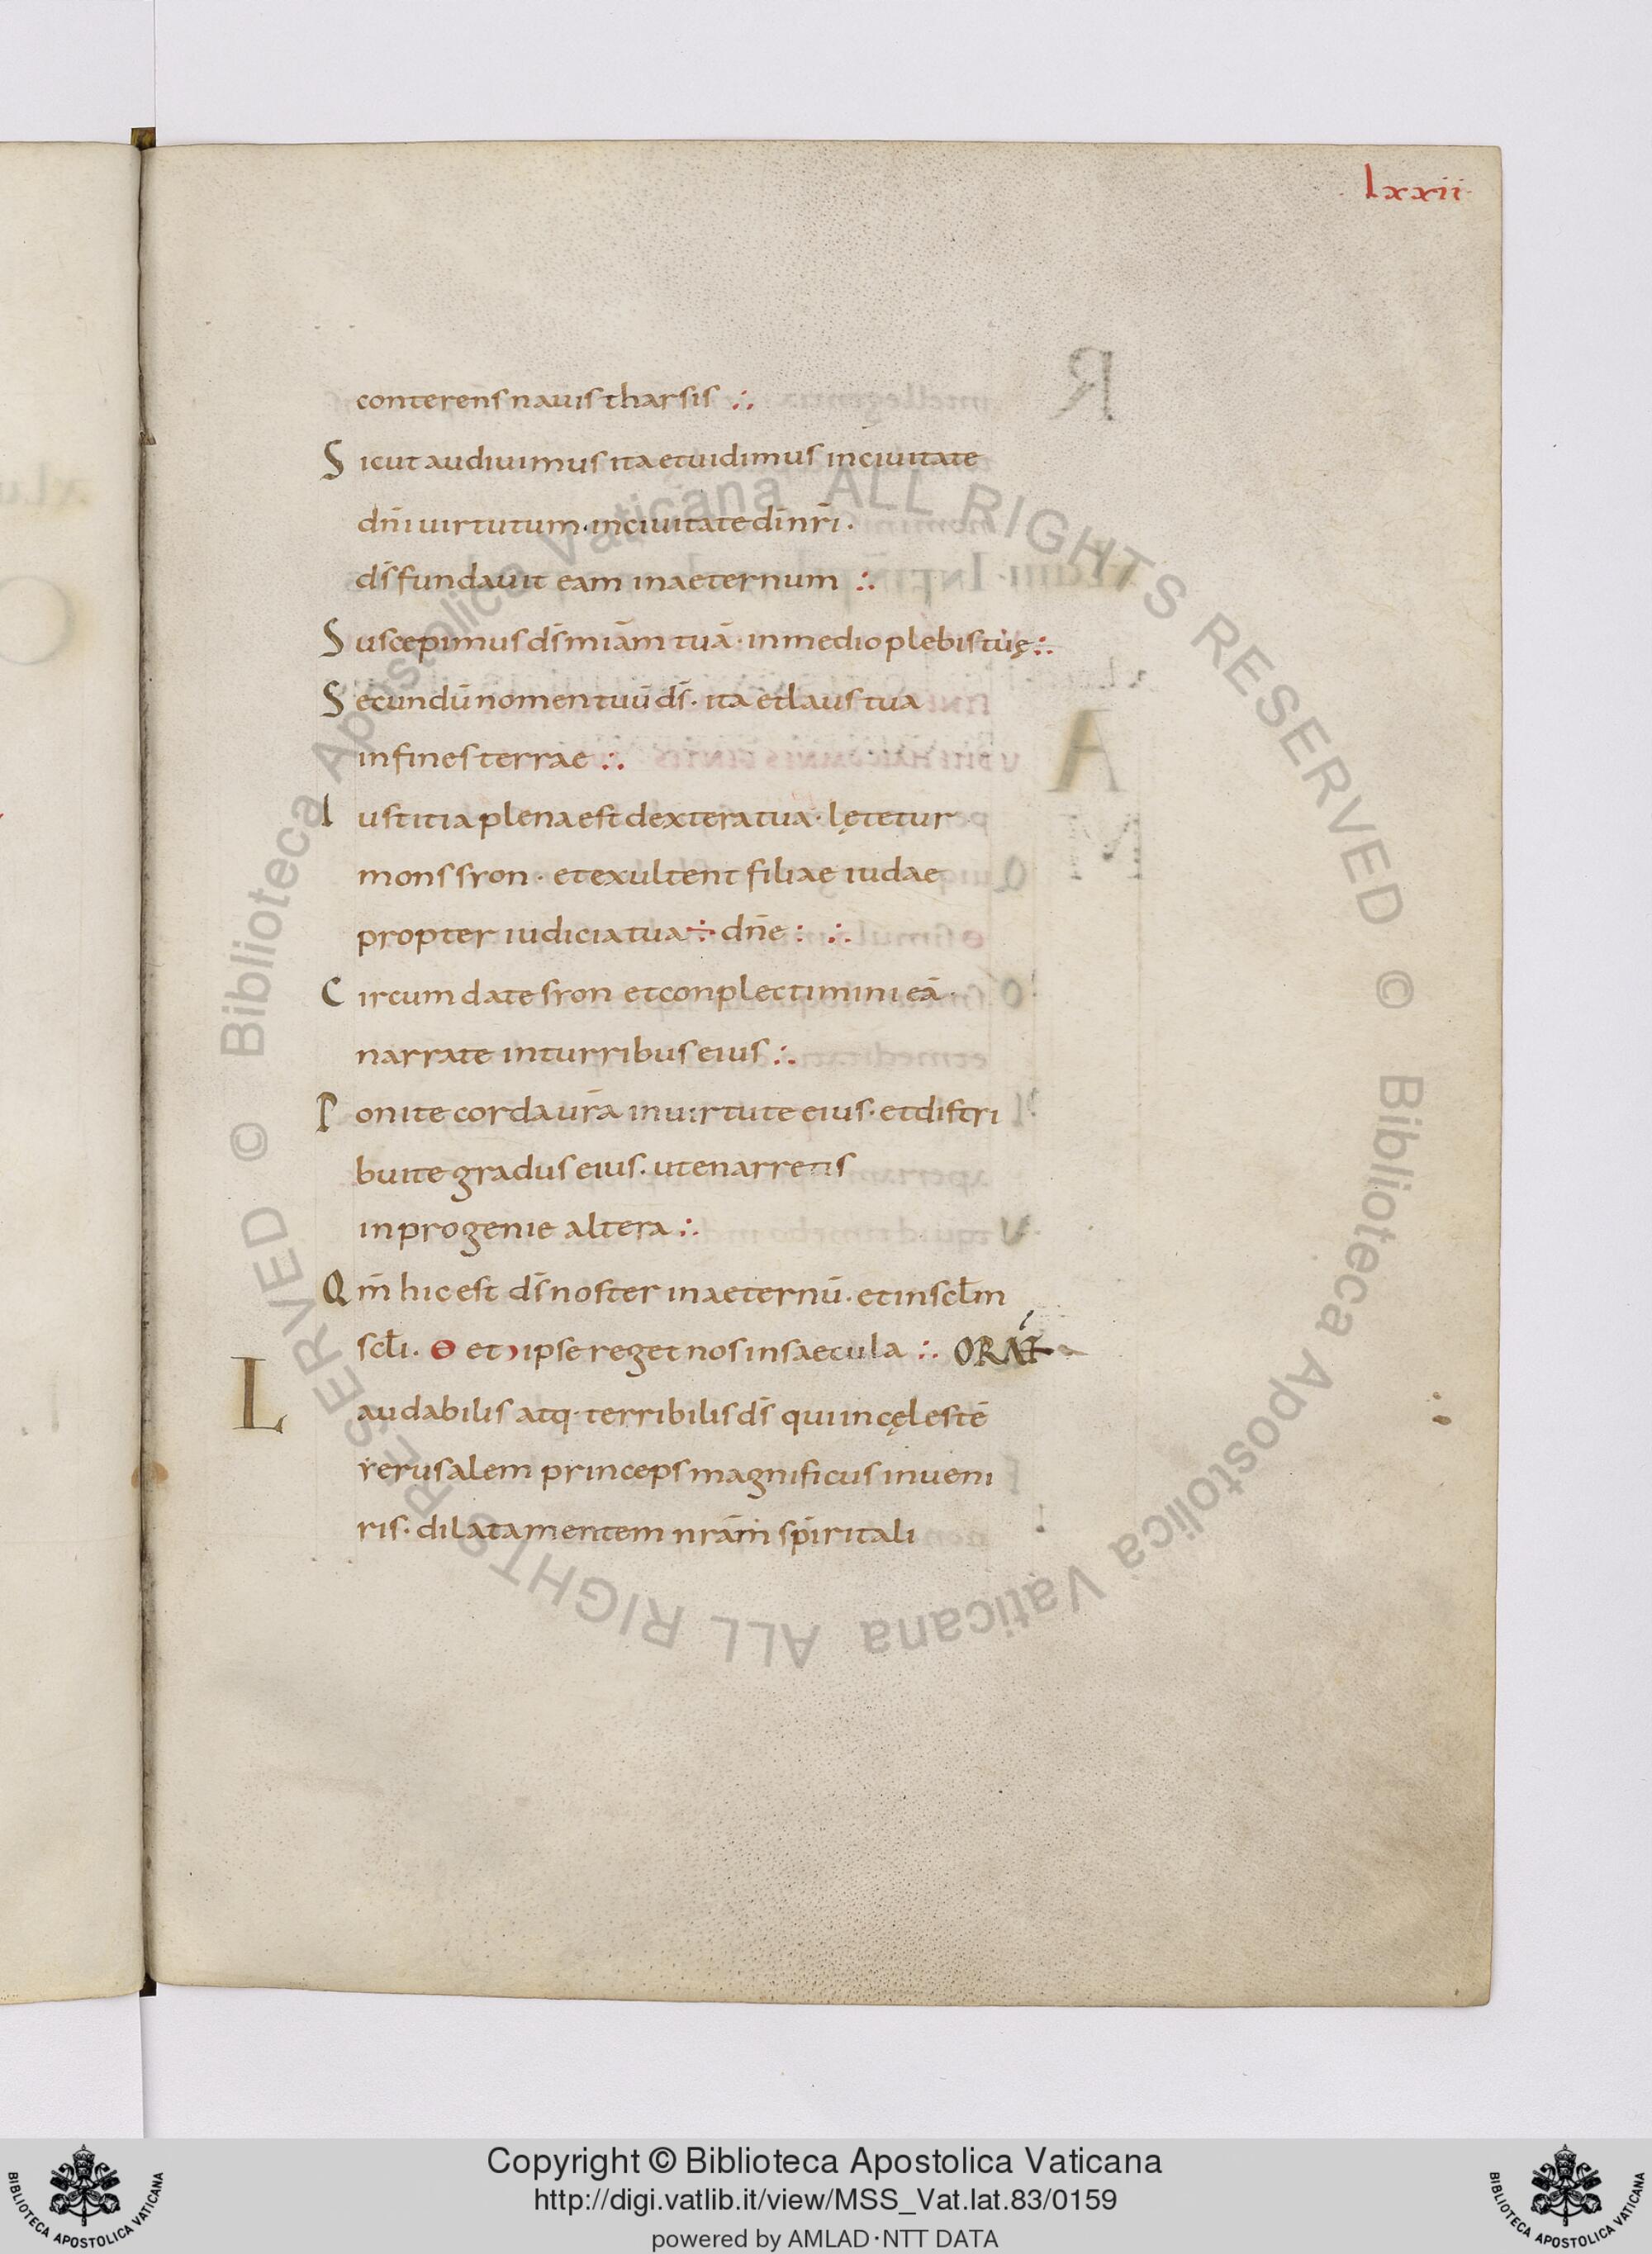 lxxii
conterens nauis tharsis ∴
Sicut audiuimus ita et uidimus in ciuitate
dn̄i uirtutum · in ciuitate dī nr̄i ·
ds̄ fundauit eam in aeternum ∴
Suscepimus ds̄ miām tuā · in medio plebis tuę ∴
Secundū nomen tuū ds̄ · ita et laus tua
in fines terrae ∴
Iustitia plena est dextera tua · lętetur
mons sion · et exultent filiae iudae
propter iudicia tua ÷ dn̄e : ∴
Circumdate sion et conplectimini eā ·
narrate in turribus eius ∴
Ponite corda ur̄a in uirtute eius · et distri
buite gradus eius · ut enarretis
in progenie altera ∴
Qm̄ hic est ds̄ noster in aeternū · et in scl̄m
scl̄i · ɵ et ipse reget nos in saecula ∴ ORAT̄
Laudabilis atq· terribilis ds̄ qui in cęlestē
ierusalem princeps magnificus inueni
ris · dilata mentem nrām sp̄iritali
Copyright © Biblioteca Apostolica Vaticana
http://digi.vatlib.it/view/MSS_Vat.lat.83/0159
powered by AMLAD·NTT DATA
© Biblioteca Apostolica Vaticana ALL RIGHTS RESERVED
© Biblioteca Apostolica Vaticana ALL RIGHTS RESERVED
BIBLIOTECA APOSTOLICA VATICANA
BIBLIOTECA APOSTOLICA VATICANA